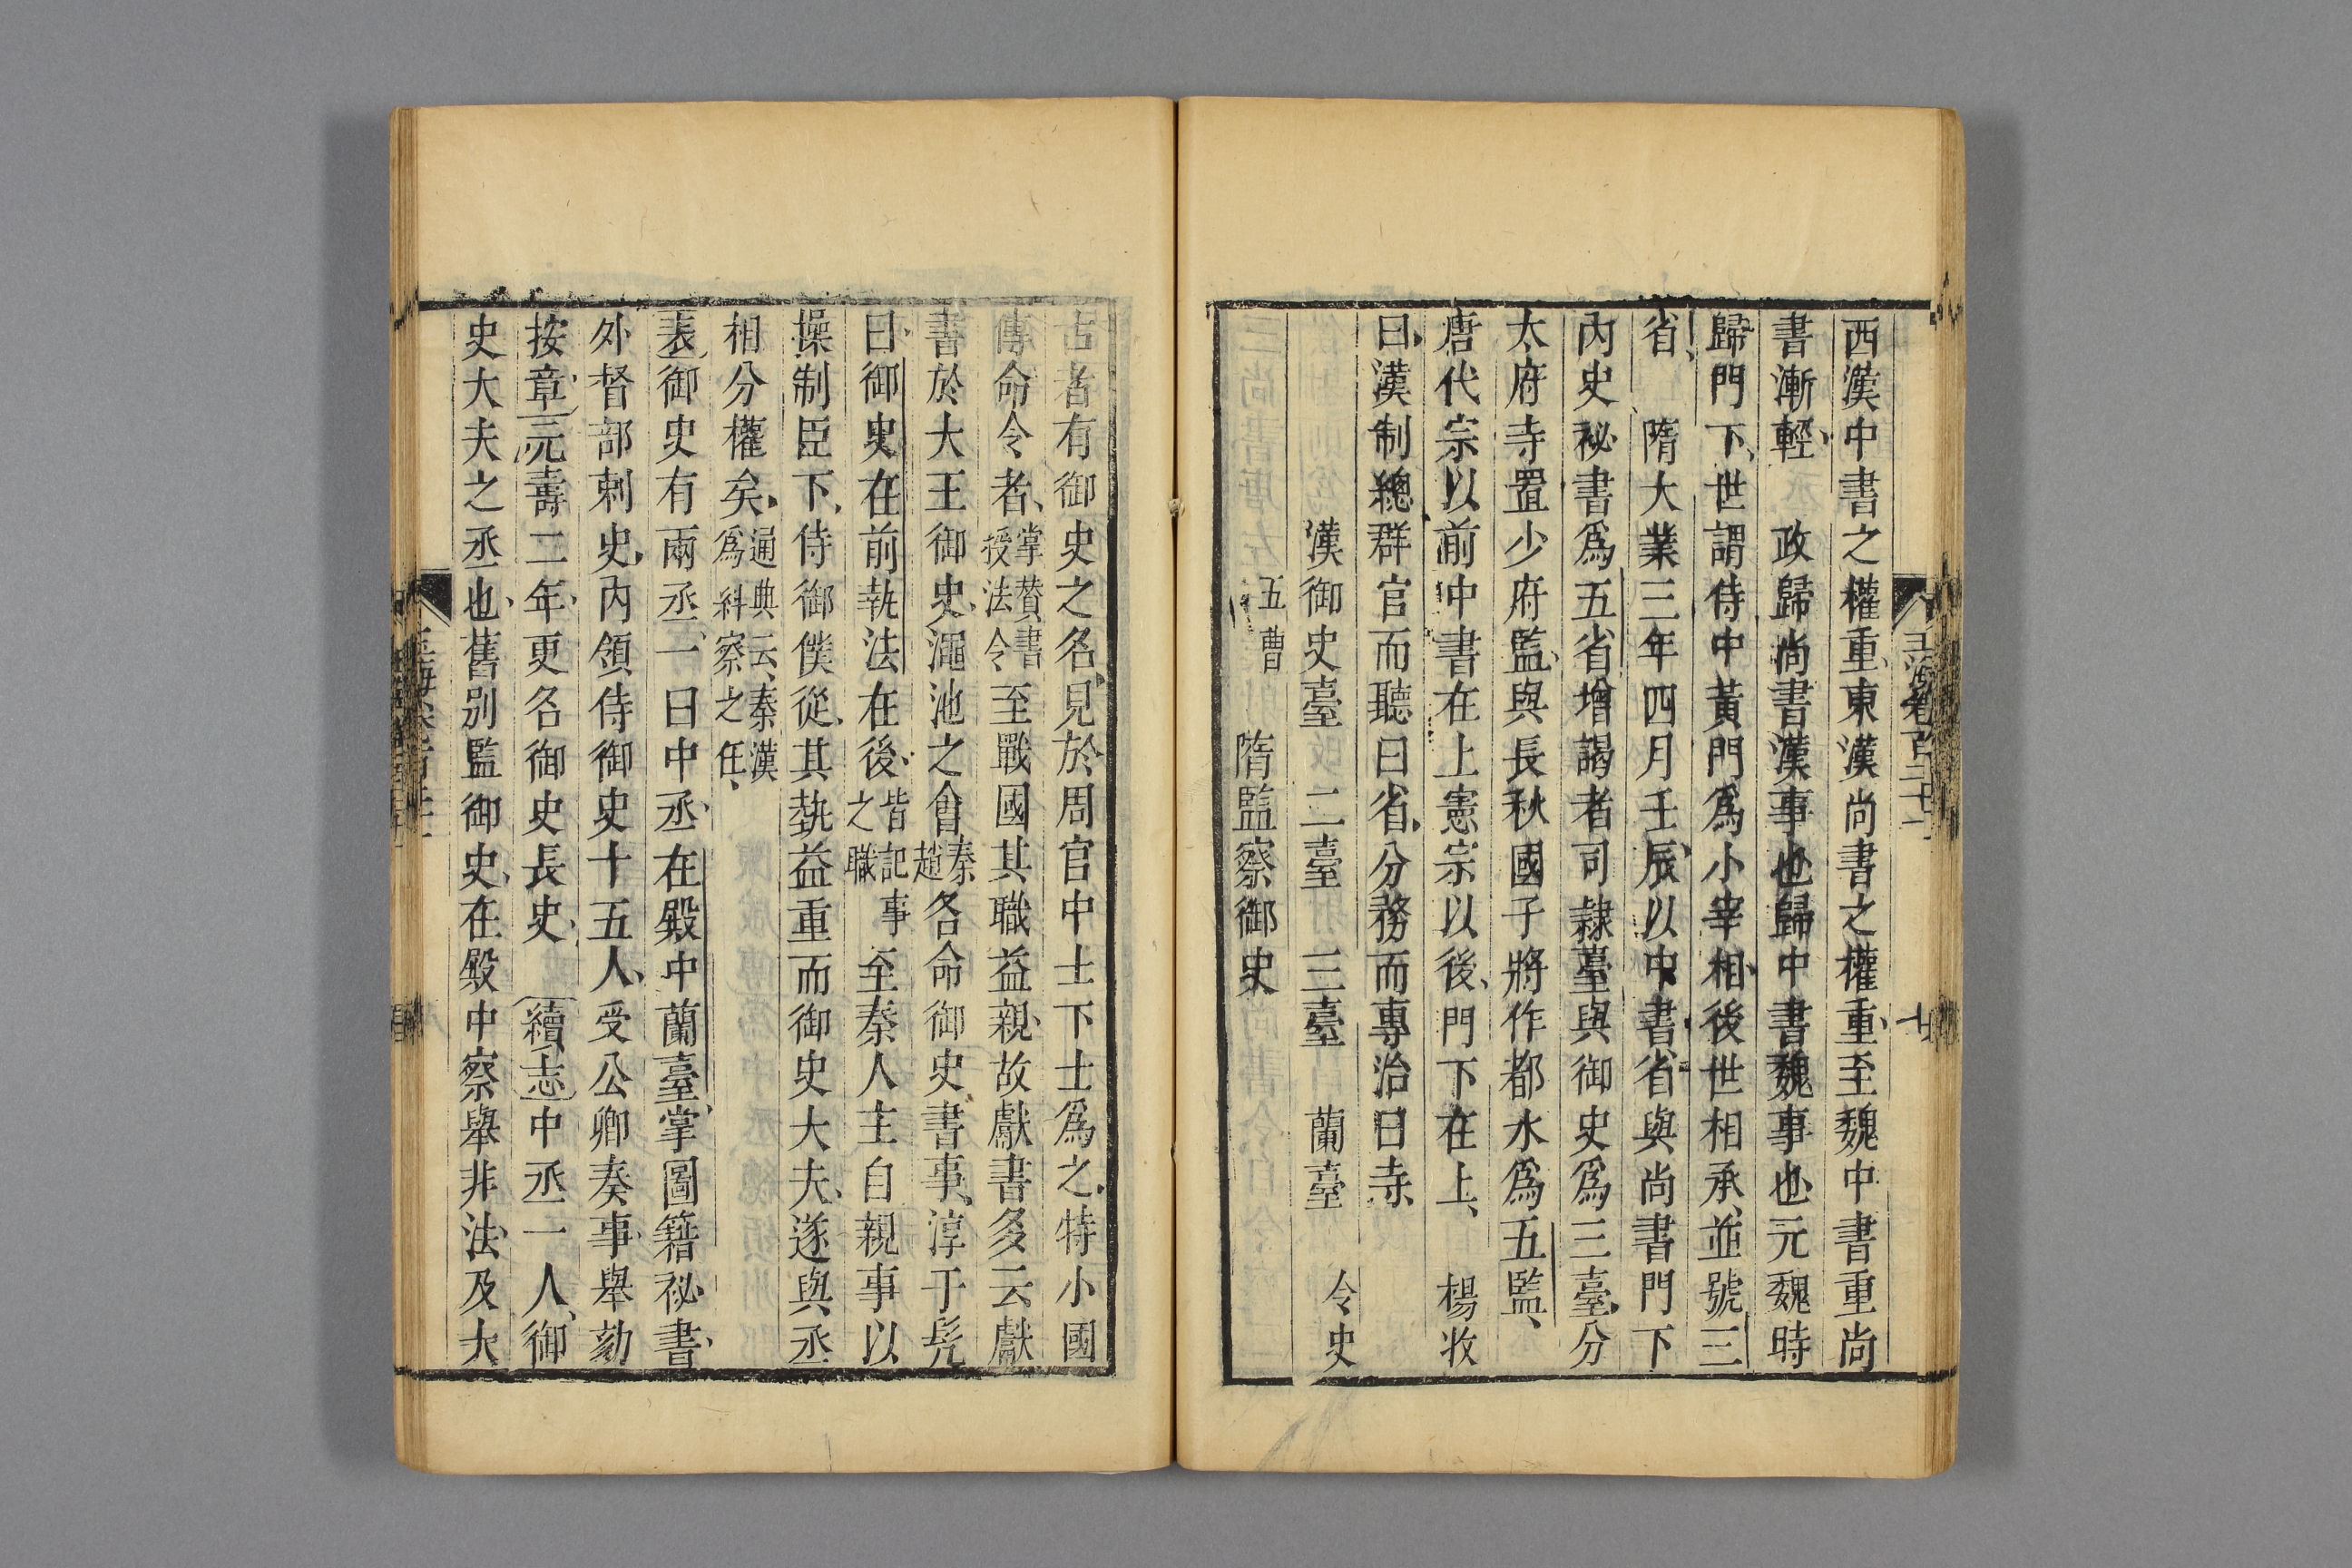 玉海卷百二十一
十
西漢中書之權重東漢尚書之權重至魏中書重尚
書漸輕 政歸尚書漢事也歸中書魏事也元魏時
歸門下世謂侍中黃門爲小宰相後世相承並號三
省 隋大業三年四月壬辰以中書省與尚書門下
內史祕書爲五省增謁者司隷臺與御史爲三臺分
太府寺置少府監與長秋國子將作都水爲五監
唐代宗以前中書在上憲宗以後門下在上 楊收
曰漢制總群官而聽曰省分務而專治曰寺
漢御史臺 二臺 三臺 蘭臺 令史
五曹 隋監察御史
古者有御史之名見於周官中士下士爲之特小國
傳命令者掌贊書授法令至戰國其職益親故獻書多云獻
書於大王御史澠池之會秦趙各命御史書事淳于髠
曰御史在前執法在後皆記事之職至秦人主自親事以
操制臣下侍御僕從其埶益重而御史大夫遂與丞
相分權矣通典云秦漢爲糾察之任
表御史有兩丞一曰中丞在殿中蘭臺掌圖籍祕書
外督部刺史內領侍御史十五人受公卿奏事舉劾
按章元壽二年更名御史長史 續志中丞一人御
史大夫之丞也舊別監御史在殿中察舉非法及大